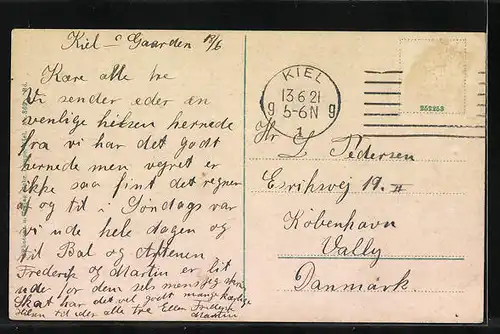 Kiel - Gaarden 13/6
Kære alle tre
Vi sender eder en
venlige hilsen hernede
fra vi har det godt
hernede men vejret er
ikke saa fint det regner
af og til i Söndags var
vi ude hele dagen og
til Bal og Aftenen
Frederik og Martin er lit
ude for dem selv
Skat har det vel godt mange kærlige
hilsen til eder alle tre Ellen Frederik
Martin
KIEL
13.6.21
5-6N
g g
1
252253
Hr L Pedersen
Esrihsvej 19. II
Köbenhavn
Valby
Danmark.